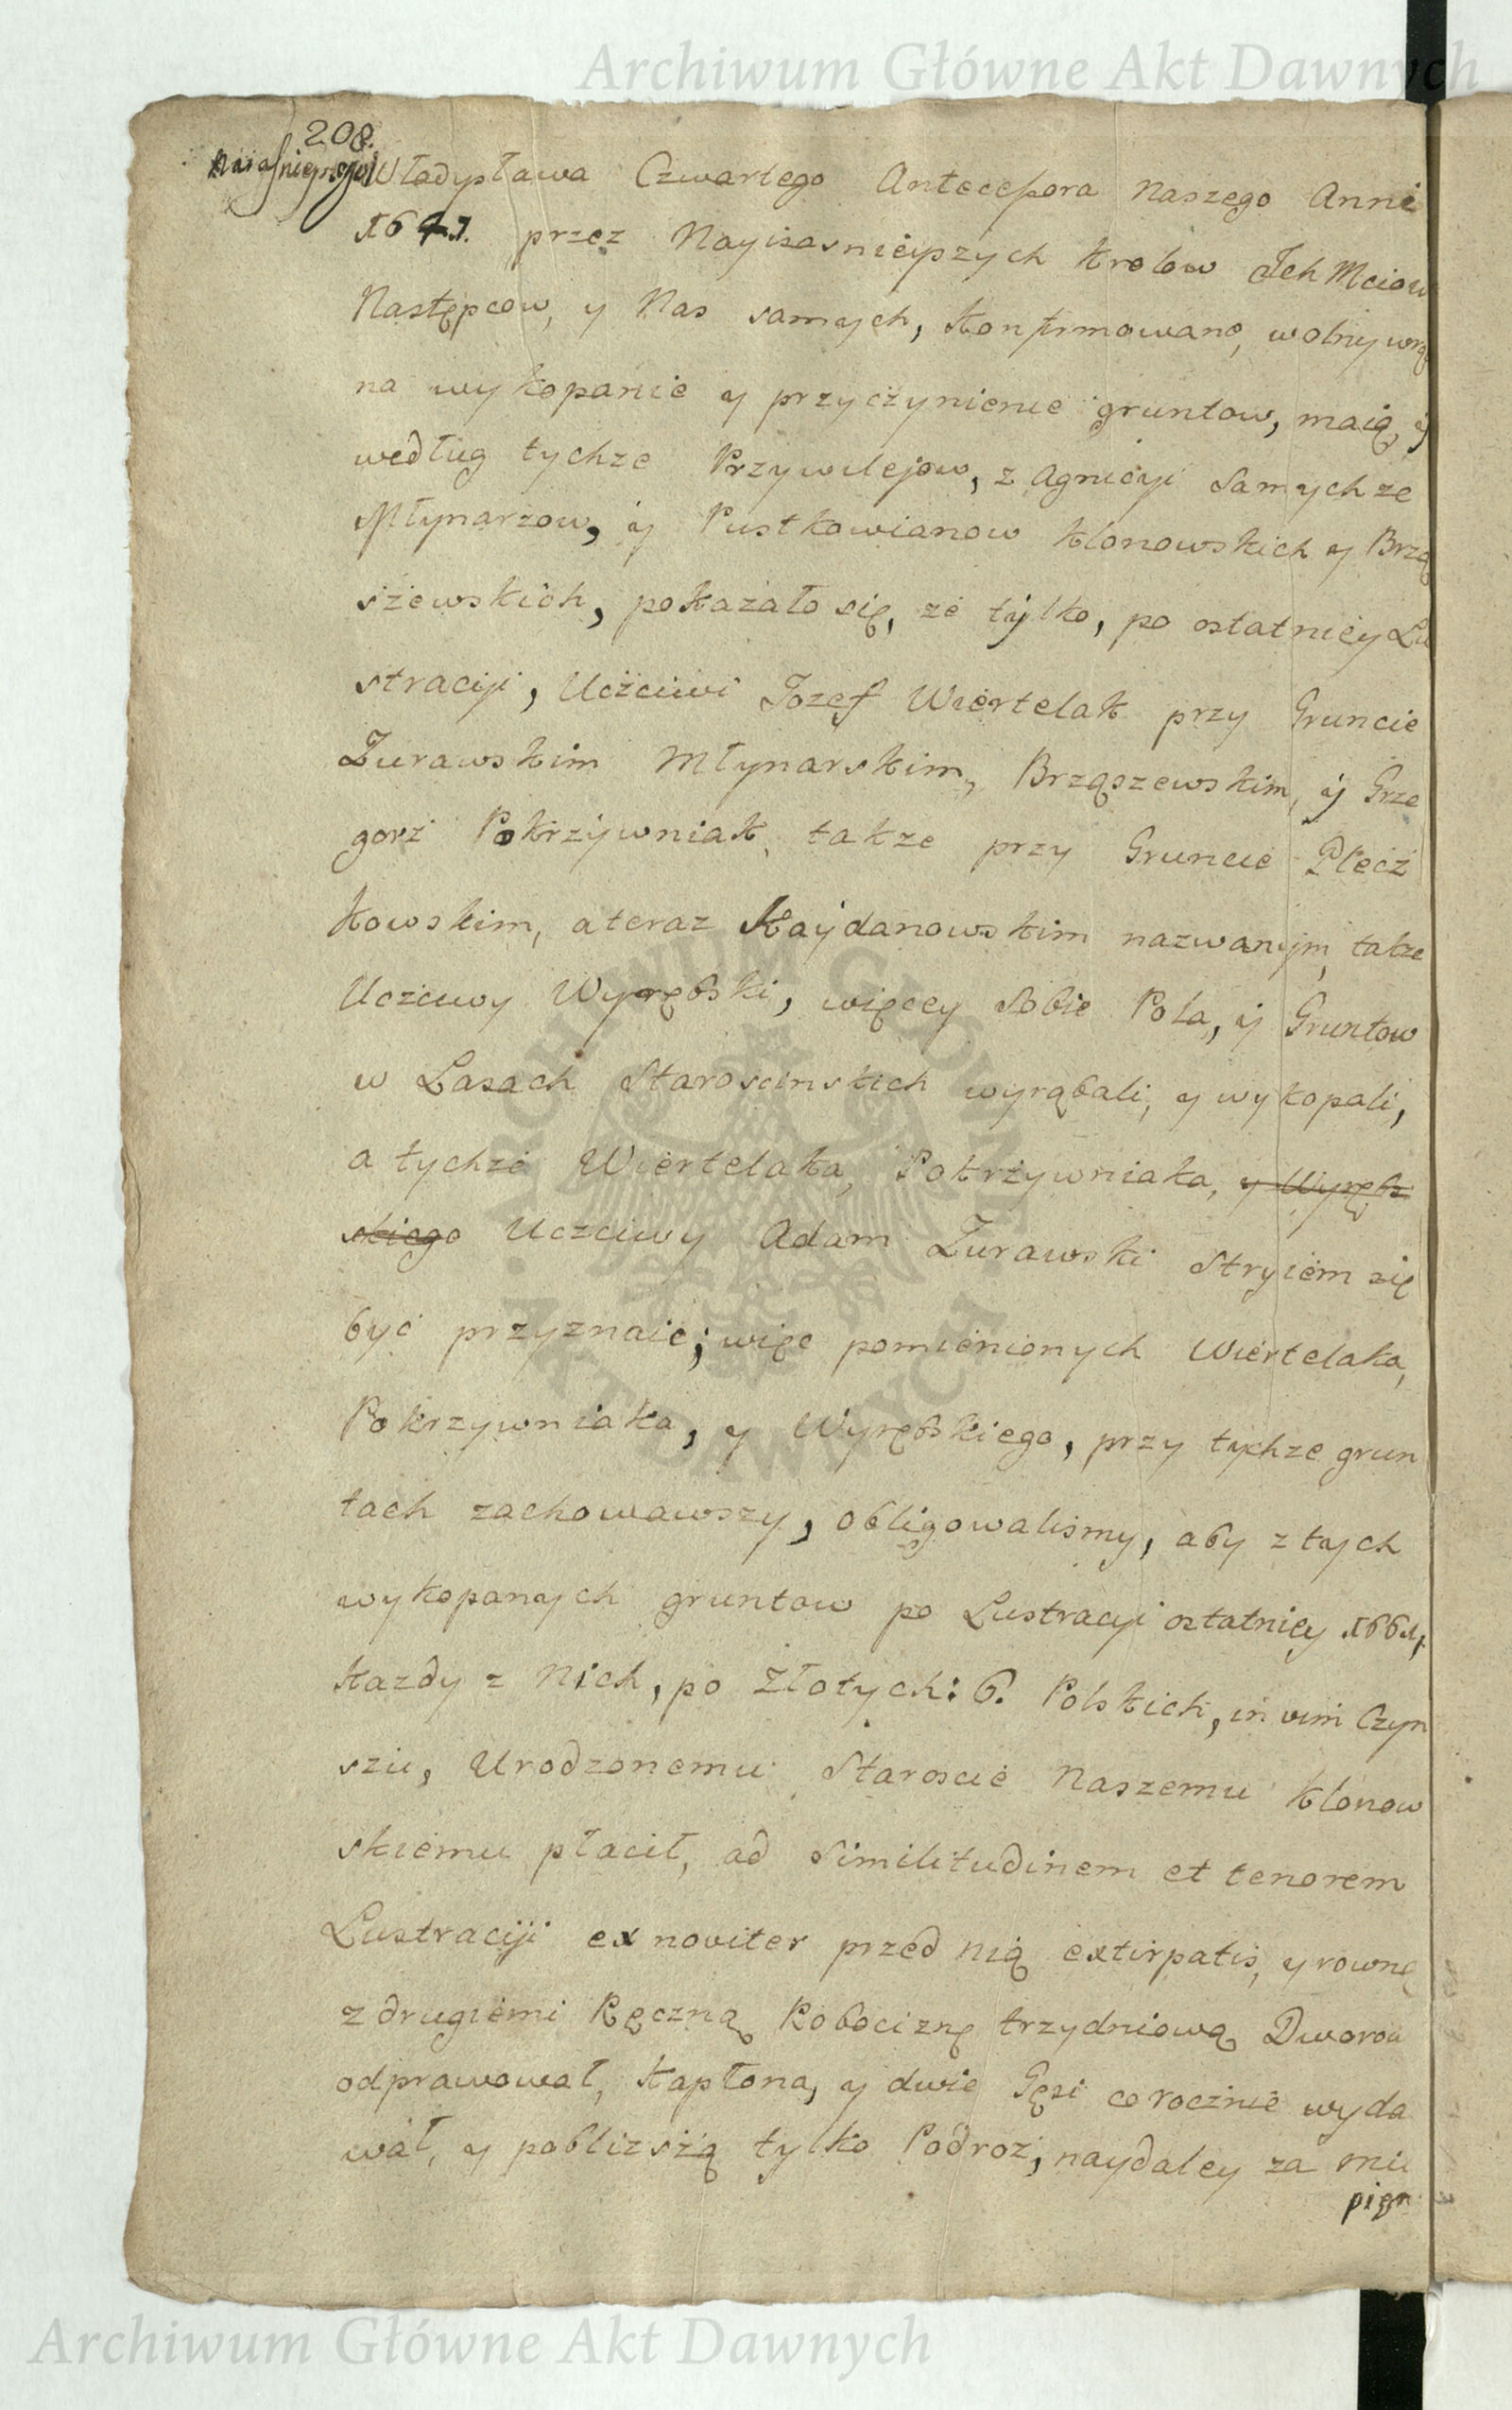 Archiwum Główne Akt Dawnych
208.
Władysława Czwartego Antecessora Naszego Anni
1641. przez Nayiasnieyszych Krolow Ich Mciow
Następcow, y Nas samych, Konfirmowane, wolny wrąb
na wykopanie y przyczynienie gruntow, maią, y
według tychze Przywilejow, z Agnicyi Samychze
Młynarzow, y Pustkowianow Klonowskich y Brzą
szewskich, pokazało się, ze tylko, po ostatniey Lu
stracyi, Uczciwi Jozef Wiertelak przy Gruncie
Zurawskim Młynarskim, Brząszewskim, y Grze
gorz Pokrzywniak, takze przy Gruncie Plecz
kowskim, a teraz Kaydanowskim nazwanym, takze
Uczciwy Wyrębski, więcey Sobie Pola, y Gruntow
w Lasach Staroscinskich wyrąbali, y wykopali,
a tychze Wiertelaka, Pokrzywniaka, y Wyręb
skiego Uczciwy Adam Zurawski Stryiem się
być przyznaie; więc pomienionych Wiertelaka,
Pokrzywniaka, y Wyrębskiego, przy tychze grun
tach zachowawszy, obligowalismy, aby z tych
wykopanych gruntow po Lustracyi ostatniey 1661,
Kazdy z Nich, po Złotych: 6. Polskich, in vim Czyn
szu, Urodzonemu Staroscie Naszemu Klonow
skiemu płacił, ad Similitudinem et tenorem
Lustracyi ex noviter przed nią extirpatis, y rowne
z drugiemi Ręczną Robociznę trzydniową Dworow
odprawował, Kapłona, y dwie Gęsi corocznie wyda
wał, y poblizszą tylko Podroz, naydaley za mil
pięn
Archiwum Główne Akt Dawnych